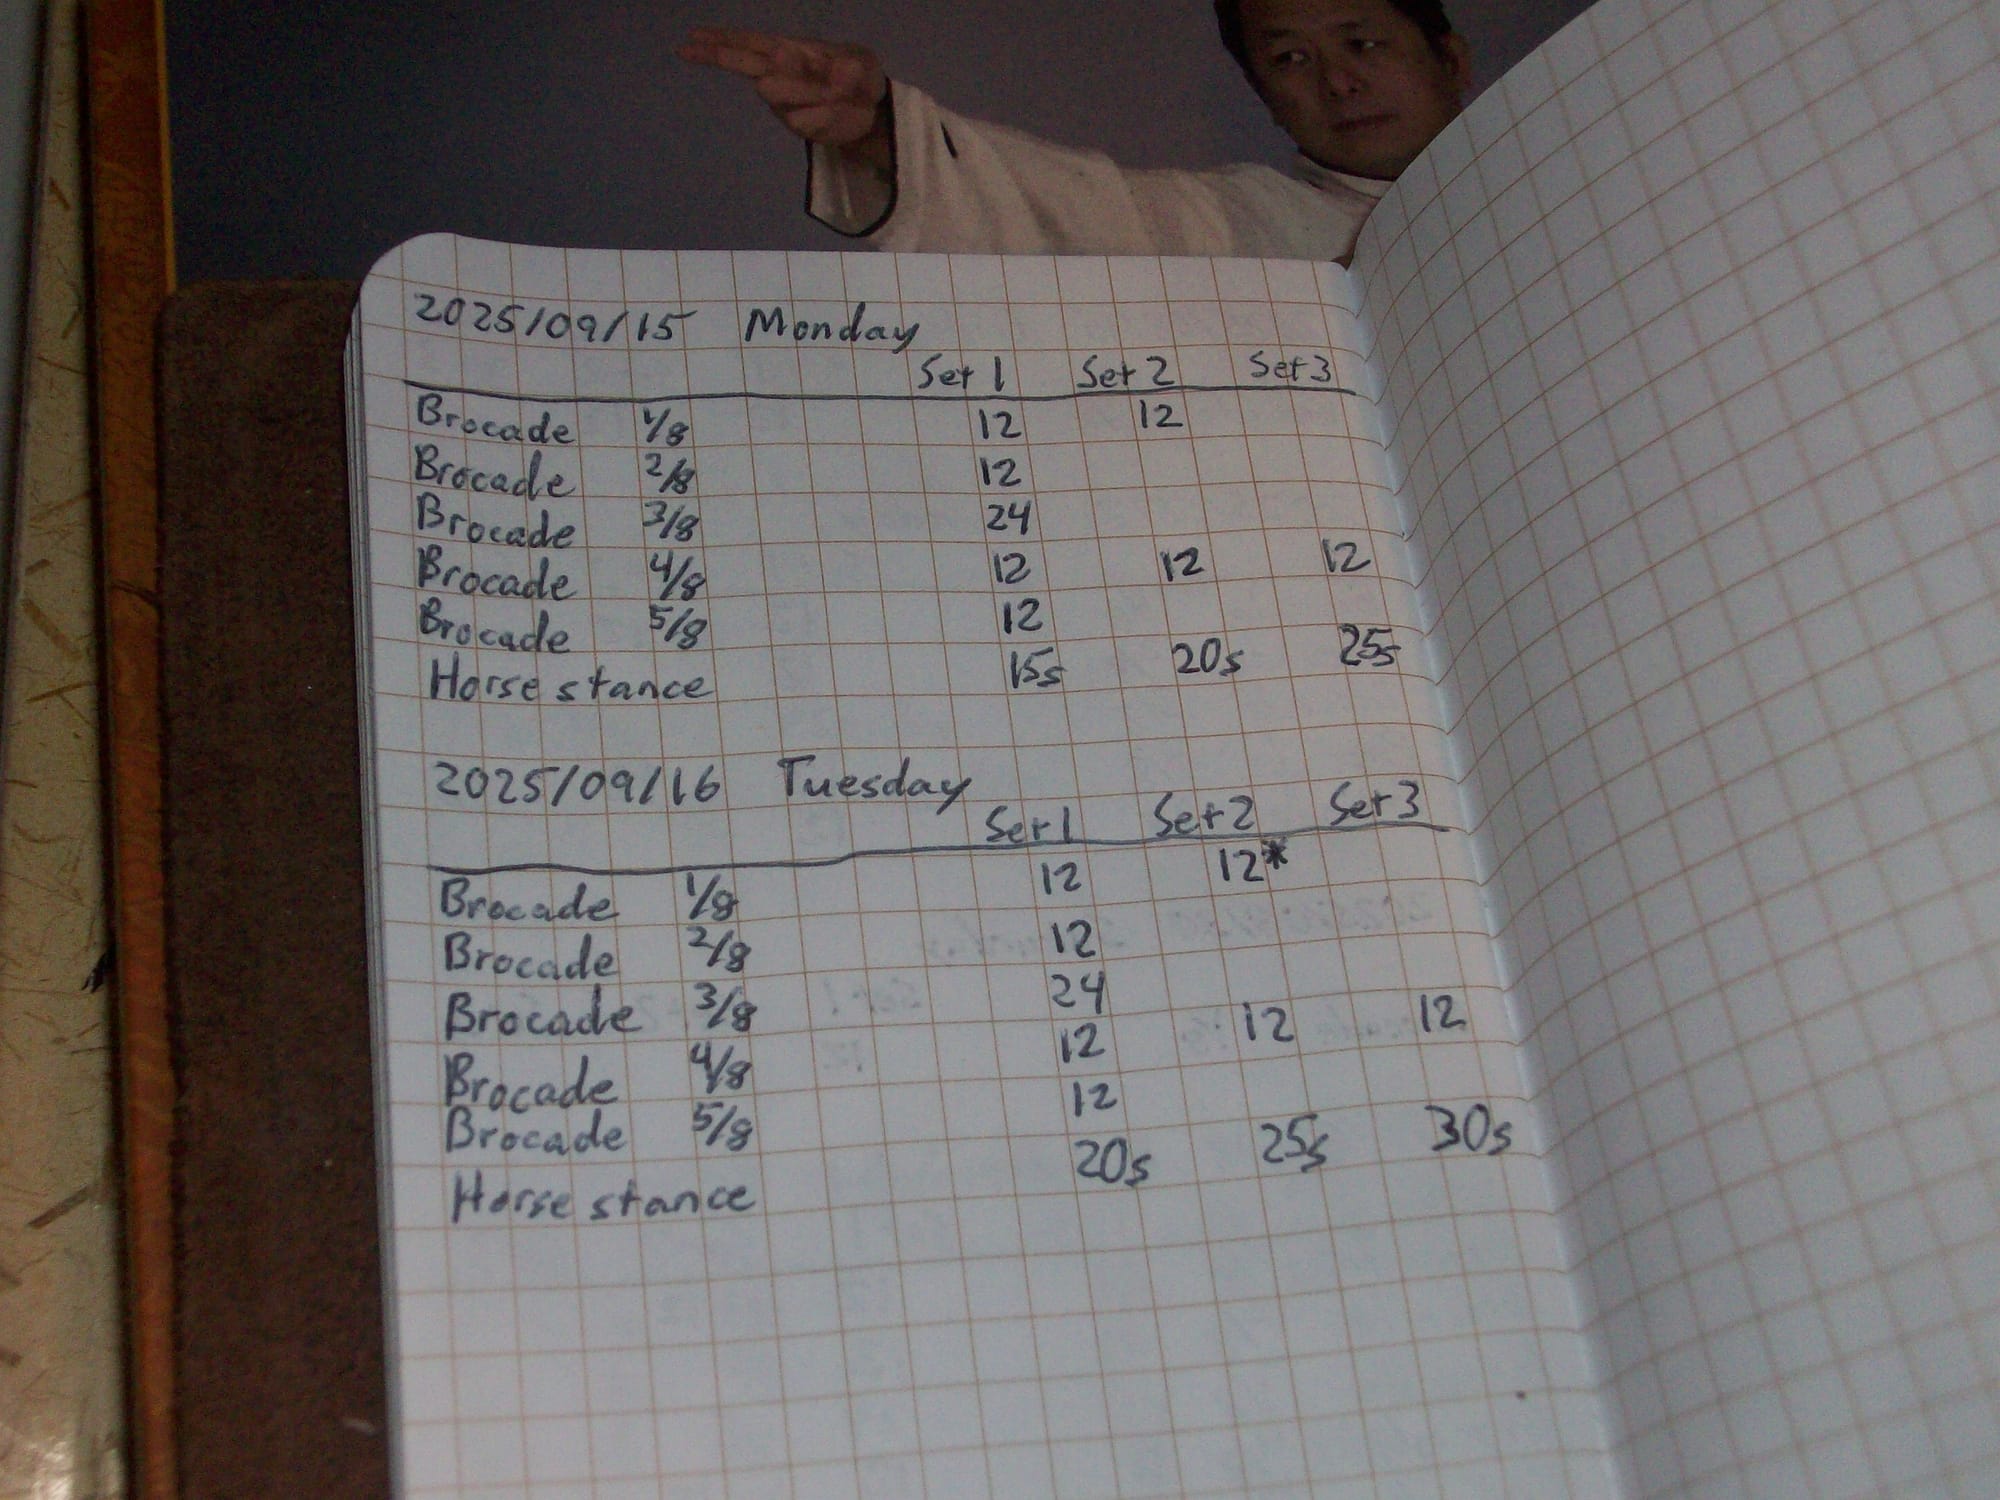 2025/09/15 Monday
Set 1 Set 2 Set 3
Brocade 1/8 12 12
Brocade 2/8 12
Brocade 3/8 24
Brocade 4/8 12 12 12
Brocade 5/8 12
Horse stance 15s 20s 25s
2025/09/16 Tuesday
Set 1 Set 2 Set 3
Brocade 1/8 12 12*
Brocade 2/8 12
Brocade 3/8 24
Brocade 4/8 12 12 12
Brocade 5/8 12
Horse stance 20s 25s 30s